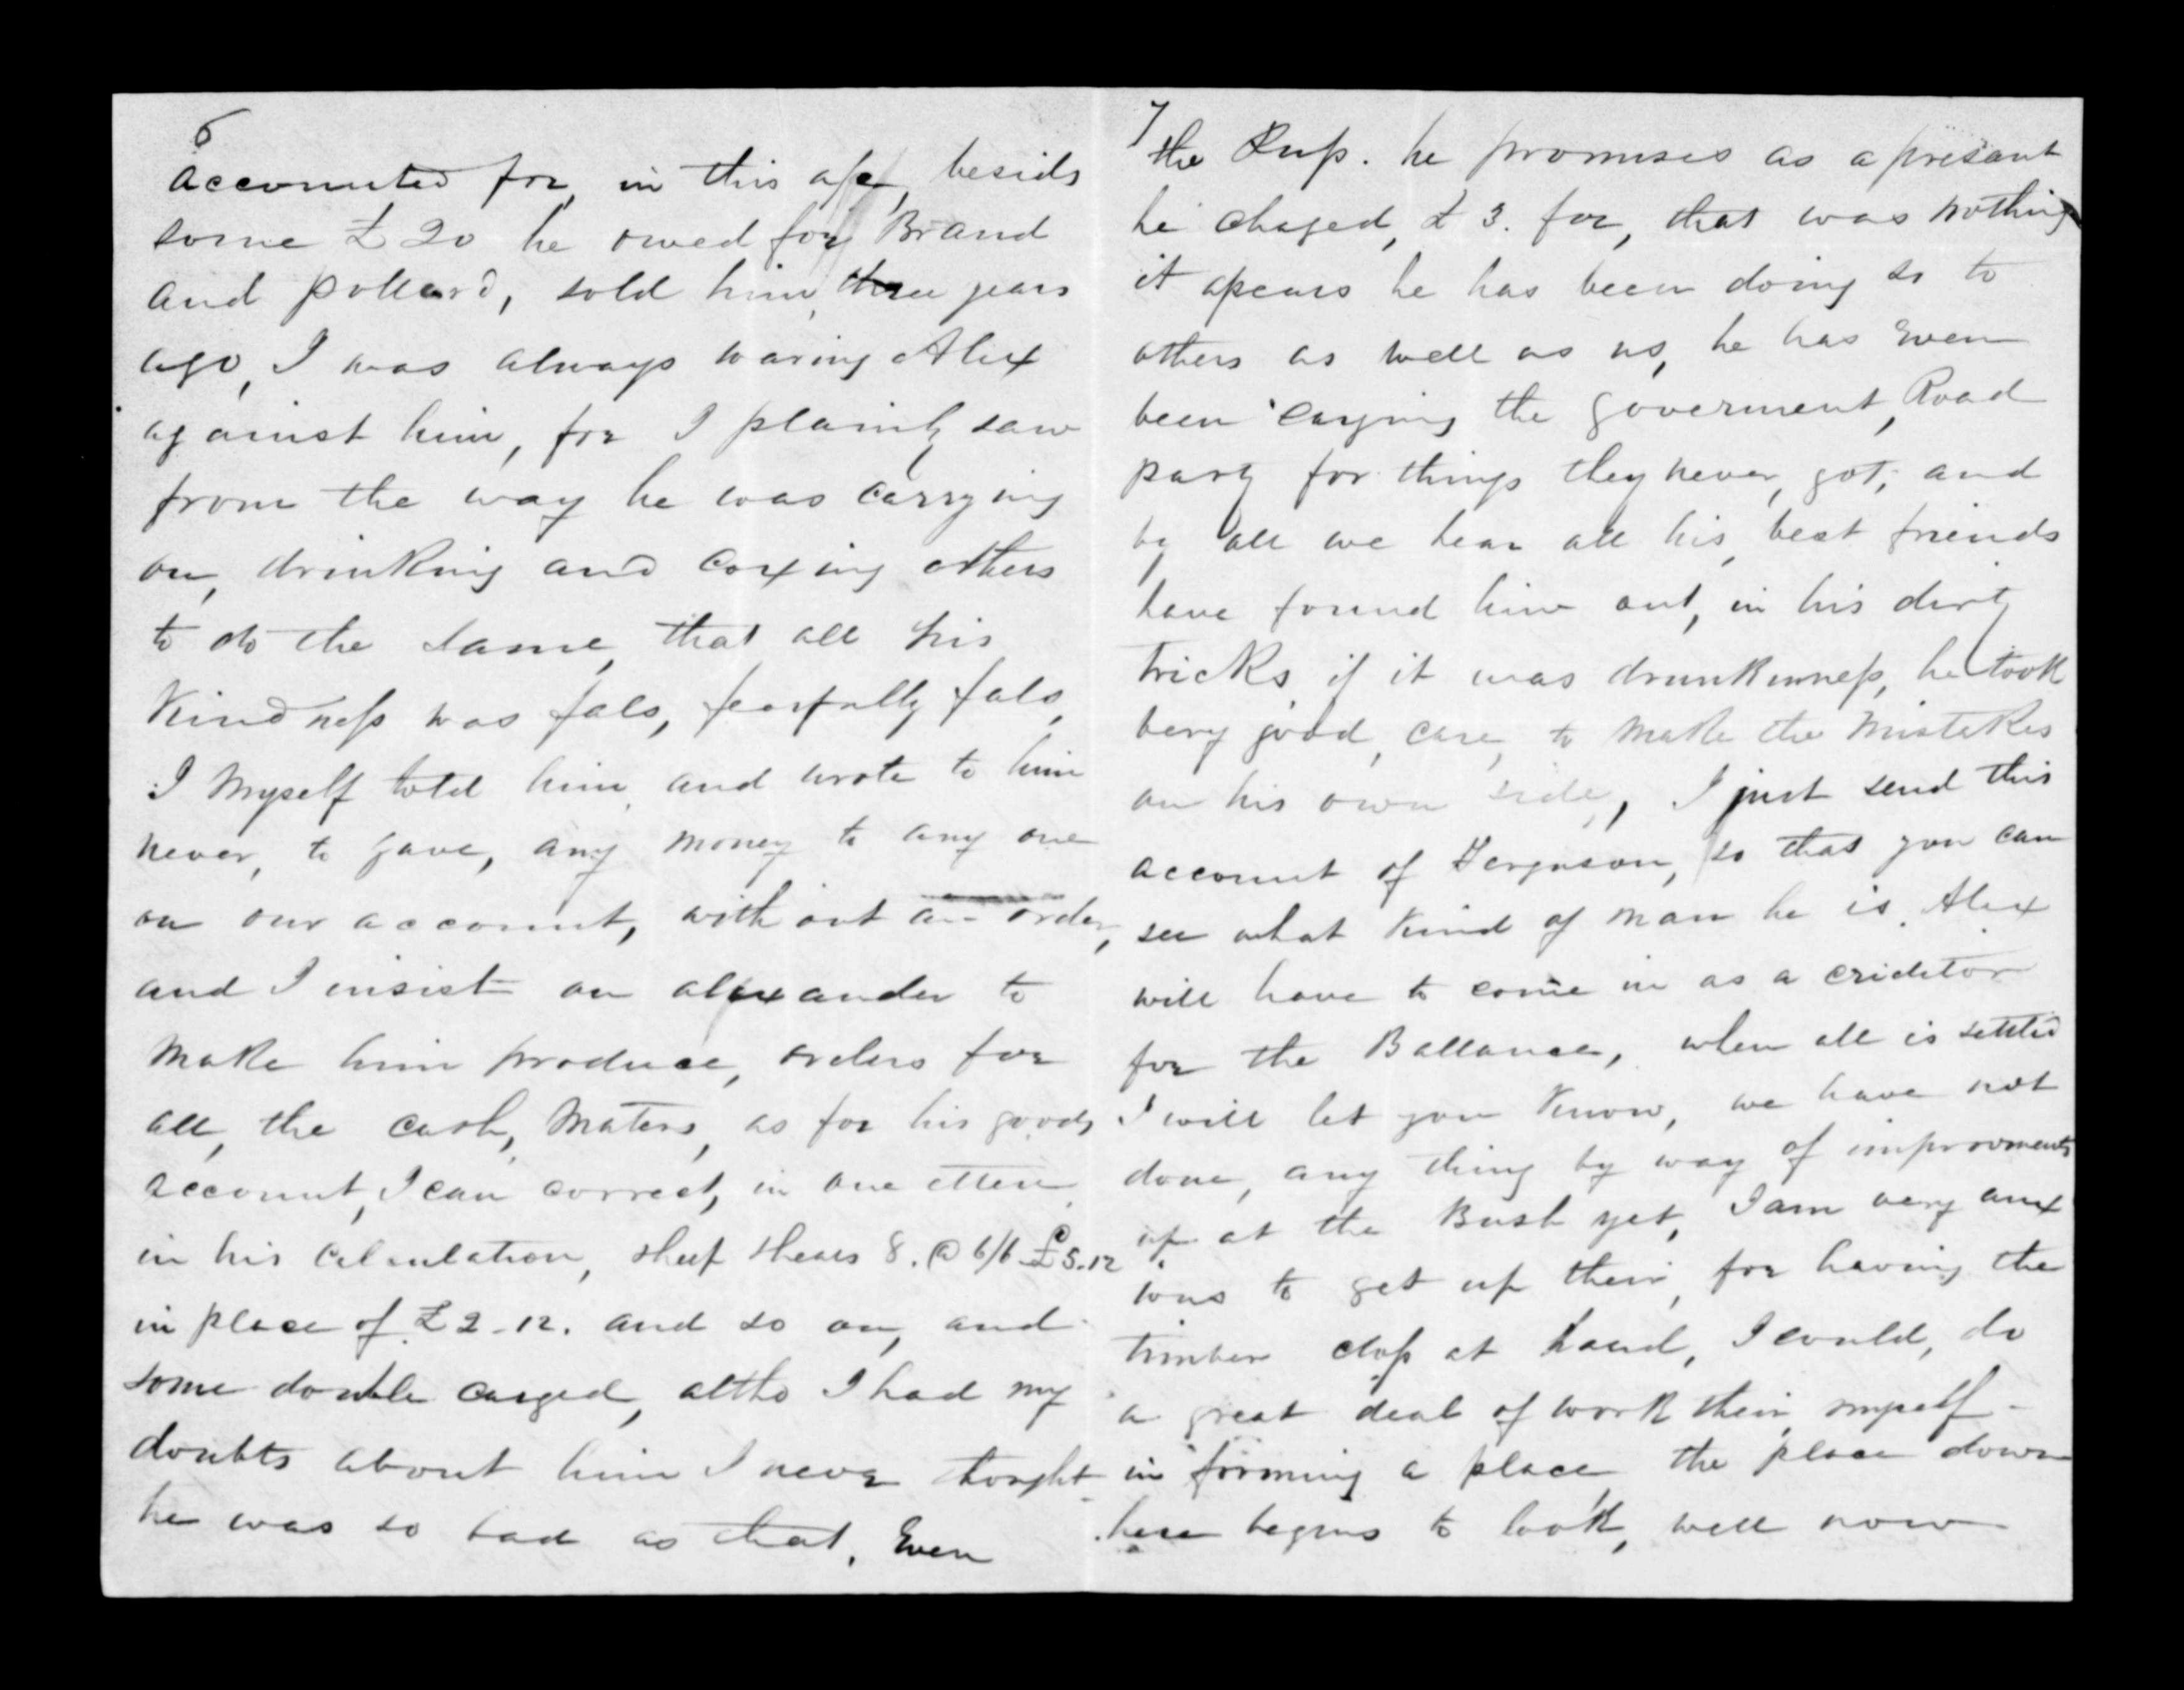 6
accounted for, in this a/c, besids
some £20 he owed for Brand
and pollard, sold him, three years
ago, I was always waring Alex
against him, for I plainly saw
from the way he was carrying
on, drinking and coxing others
to do the same, that all his
Kindness was fals, fearfully fals,
I myself told him, and wrote to him
never, to gave, any money to any one
on our account, with out an order,
and I insist on alexander to
make him produce, orders for
all, the cash, maters, as for his goods
account, I can correct, in one
in his calculation, sheep shears 8. @ 6/6 £5-12
in place of £2-12. and so on, and
some double carged, altho I had my
doubts about him I never thought
he was so bad as that, Even
7
the he promises as a presant
he chaged, £3. for, that was nothing
it apears he has been doing so to
others as well as us, he has even
been carging the goverment, Road
party for things they never, got, and
by all we hear all his, best friends
have found him out, in his dirty
tricks, if it was drunkinness, he took
very good, care, to make the mistakes
on his own side, I just send this
account of Ferguson, so that you can
see what kind of man he is, Alex
will have to come in as a criditor
for the Ballance, when all is settled
I will let you know, we have not
done, any thing by way of improvments
up at the Bush yet, I am very anx
ious to get up their, for having the
timber closs at hand, I could, do
a great deal of work their, myself -
in forming a place, the place down
here begins to look, well now